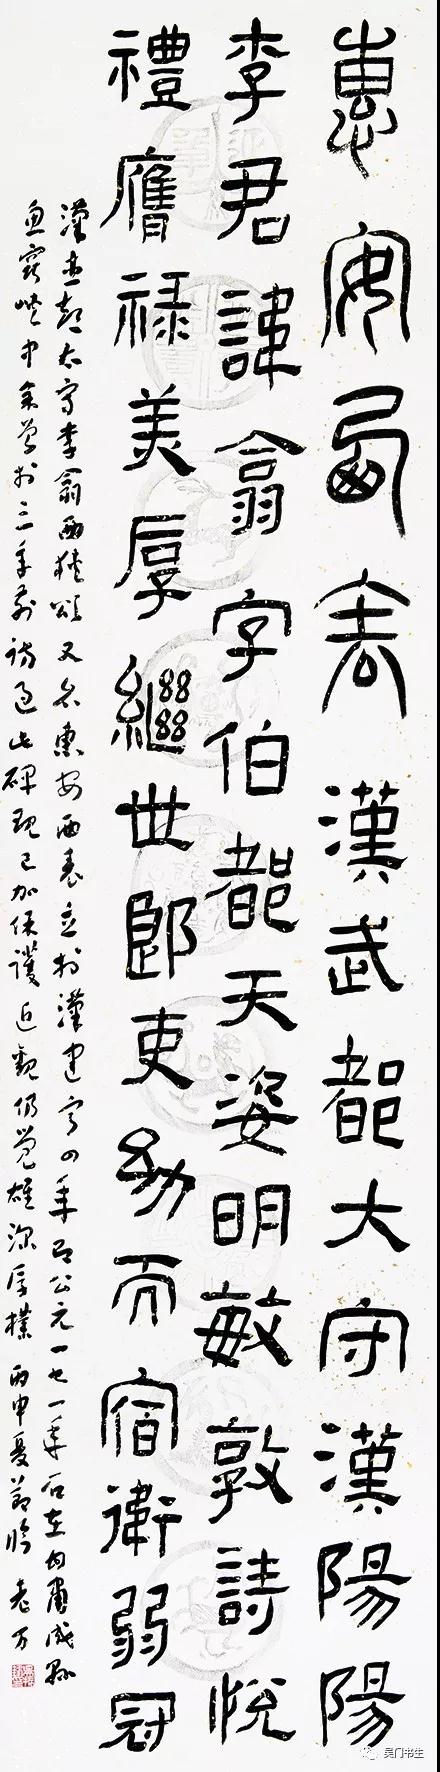 惠安西表漢武都大守漢陽陽
李君諱翕字伯都天姿明敏敦詩悅
禮膺祿美厚繼世郎吏幼而宿衛弱冠
漢武都太守李翕西狹頌又名惠安西表立於漢建寧四年即公元一七一年石在甘肅成縣
魚竅峽中余曾於三年前訪過此碑現已加保護近觀仍覺雄深厚樸 丙申夏節臨 老万
吴门书生